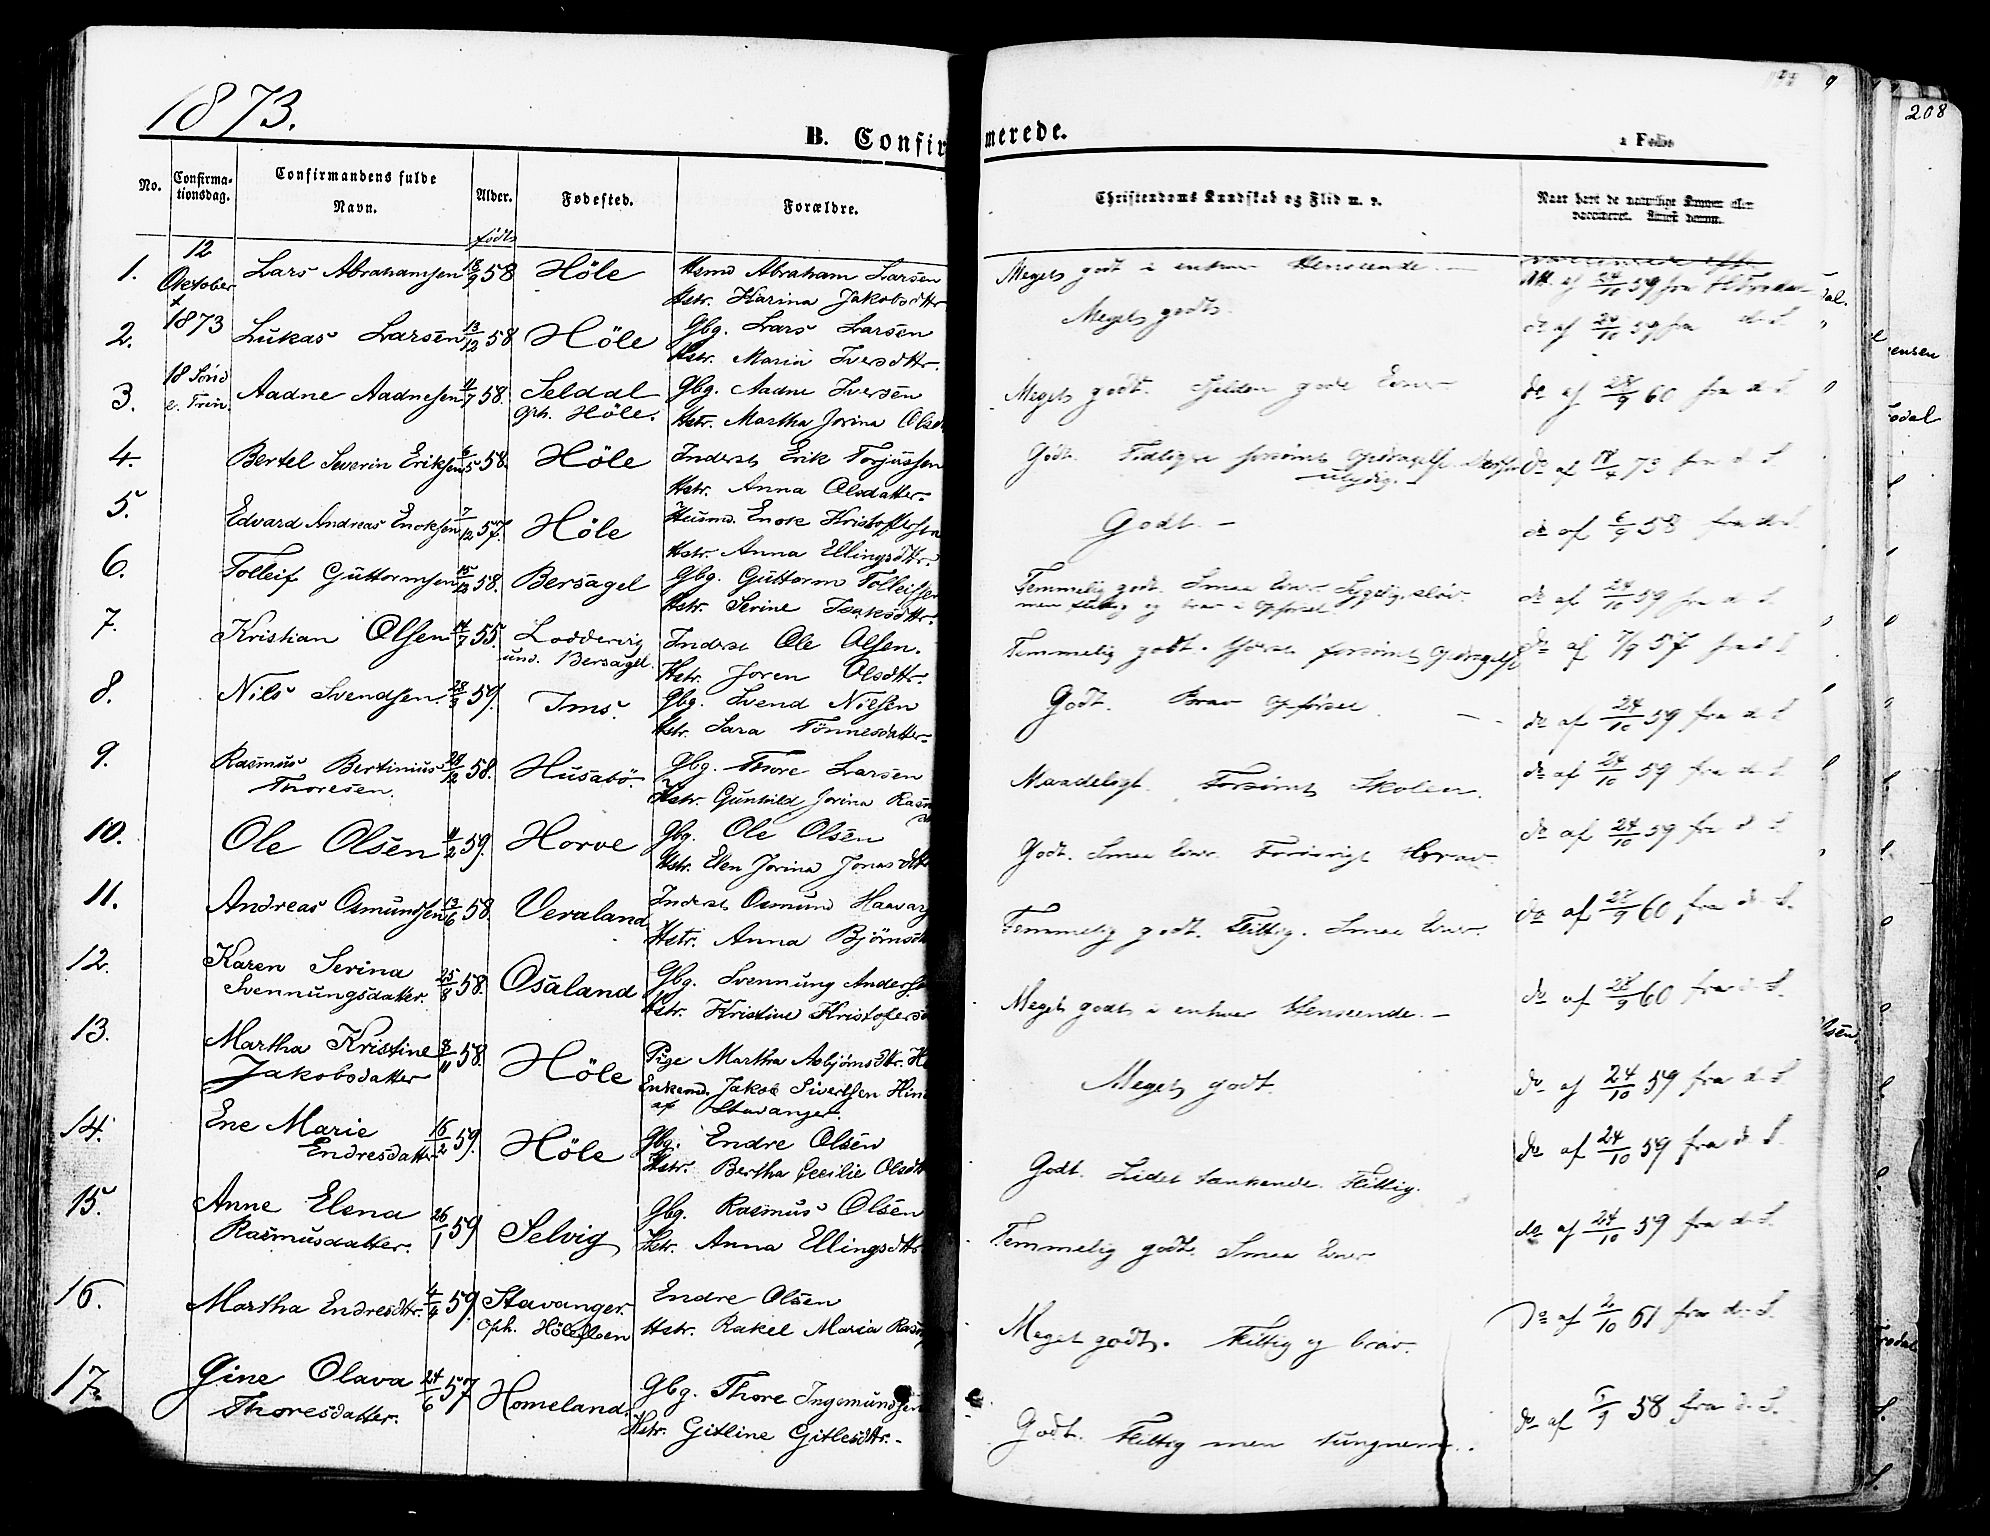 1873.
208
B. Confirmerede.
No.
Confirmationsdag.
Confirmandens fulde Navn.
Alder.
Fødested.
Forældre.
Christendoms Kundskab og Flid m. v.
födt
12 Oktober 1873
18 Sønd e. Trin.
1. Lars Abrahamsen 18/9 58 Höle Hsmd Abraham Larsen
Hstr. Karina Jakobsdttr
Meget godt i enhver Henseende. Att. af 24/10 59 fra
2. Lukas Larsen 13/12 58 Höle Gbg. Lars Larsen
Hstr. Maria Iversdttr.
Meget godt. do af 24/10 59 fra d. S.
3. Aadne Aadnesen 11/7 58. Seldal Gbg. Aadne Iversen
oph. Höle. Hstr. Martha Jorina
Meget godt. Sjelden gode Evner do af 28/9 60 fra d. S.
4. Bertel Severin Eriksen 6/5 58. Höle Inderst Erik Torjussen
Hstr. Anna Olsdatter.
Godt. Tidligere forsömt Opdragelse. do af 18/4 73 fra d. S.
ulydig.
5. Edvard Andreas Enoksen 7/12 57. Höle Huusmd. Enok Kristoffersen
Hstr. Anna Ellingsdttr.
Godt. do af 6/9 58 fra d. S.
6. Tolleif Guttormsen 15/12 58. Bersagel Gbg. Guttorm Tolleifsen
Hstr. Serine Isaksdttr.
Temmelig godt. Smaa Evner. Sygelig, sløv.
men flittig og brav i Opførsel do af 24/10 59 fra d. S.
7. Kristian Olsen 14/7 55. Loddervig Inderst Ole Olsen.
und. Bersagel. Hstr. Joren Olsdttr.
Temmelig godt. forsömt Opdragelse do af 7/9 57 fra d. S.
8. Nils Svendsen. 28/3 59. Ims. Gbg. Svend Nilsen
Hstr. Sara Tönnesdatter.
Godt. Brav Opførsel. do af 24/10 59 fra d. S.
9. Rasmus Bertinius 28/12 58. Husabö. Gbg. Thore Larsen
Thoresen. Hstr. Gunhild Jorina
Maadeligt. Forsömt Skolen. do af 24/10 59 fra d. S.
10. Ole Olsen 11/2 59. Horve Gbg. Ole Olsen
Hstr. Elen Jorina Jonasdttr
Godt. Smaa Evner. Forøvrigt brav. do af 24/10 59 fra d. S.
11. Andreas Osmundsen 13/6 58. Veraland Inderst Osmund
Hstr. Anna
Temmelig godt. Flittig. Smaa Evner. do af 28/9 60 fra d. S.
12. Karen Serina 25/8 58. Osaland Gbg. Svennung
Svennungsdatter. Hstr. Kristine
Meget godt i enhver Henseende. do af 28/9 60 fra d. S.
13. Martha Kristine 8/11 58. Höle Pige Martha Asbjörnsdttr.
Jakobsdatter Enkemd. Jakob Sivertsen
af Stavanger.
Meget godt. do af 24/10 59 fra d. S.
14. Ene Marie 16/2 59. Höle Gbg. Endre Olsen
Endresdatter Hstr. Bertha Cecilie Olsdttr
Godt. Lidet tænkende. Flittig. do af 24/10 59 fra d. S.
15. Anne Elena 26/1 59 Selvig Gbg. Rasmus Olsen
Rasmusdatter. Hstr. Anna Ellingsdttr
Temmelig godt. Smaa Evner do af 24/10 59 fra d. S.
16. Martha Endresdtr. 4/4 59. Stavanger. Endre Olsen
oph. Hstr. Rakel Maria
Meget godt. Flittig og brav. do af 2/10 61 fra d. S.
17. Gine Olava 24/6 57 Homeland. Gbg. Thore Ingemundsen
Thoresdatter. Hstr. Gitline Gitlesdttr.
Godt. Flittig men tungnem. do af 58 fra d. S.